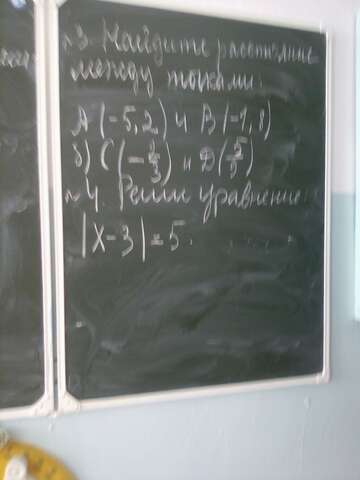 №3. Найдите расстояние
между точками:
А(-5,2) и В(-1,8)
б) С(-) и D(5/9)
№4. Реши уравнение:
|x-3|=5.